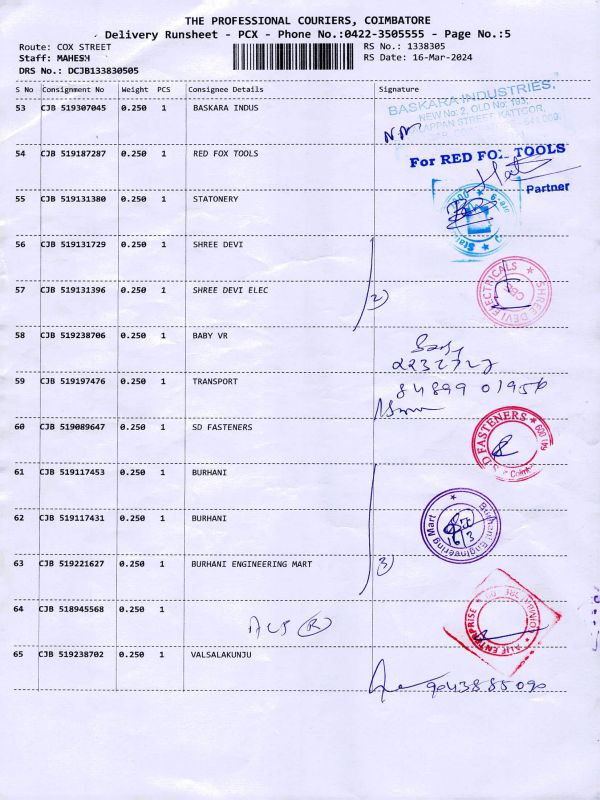 THE PROFESSIONAL COURIERS, COIMBATORE
Delivery Runsheet - PCX - Phone No.:0422-3505555 - Page No.:5
Route: COX STREET RS No.: 1338305
Staff: MAHESH RS Date: 16-Mar-2024
DRS No.: DCJB133830505
S No Consignment No Weight PCS Consignee Details Signature
53 CJB 519307045 0.250 1 BASKARA INDUS
BASKARA INDUSTRIES,
NEW No: 2, OLD No: 193,
STREET, KATTOOR,
54 CJB 519187287 0.250 1 RED FOX TOOLS
For RED FOX TOOLS
Partner
55 CJB 519131380 0.250 1 STATONERY
56 CJB 519131729 0.250 1 SHREE DEVI
57 CJB 519131396 0.250 1 SHREE DEVI ELEC
2)
SHREE DEVI ELECTRICALS
CBE
58 CJB 519238706 0.250 1 BABY VR
59 CJB 519197476 0.250 1 TRANSPORT
60 CJB 519089647 0.250 1 SD FASTENERS
SD FASTENERS
61 CJB 519117453 0.250 1 BURHANI
62 CJB 519117431 0.250 1 BURHANI
Burhani Engineering Mart
16/3
63 CJB 519221627 0.250 1 BURHANI ENGINEERING MART
3)
64 CJB 518945568 0.250 1
ALIF ENTERPRISE
65 CJB 519238702 0.250 1 VALSALAKUNJU
9043885090